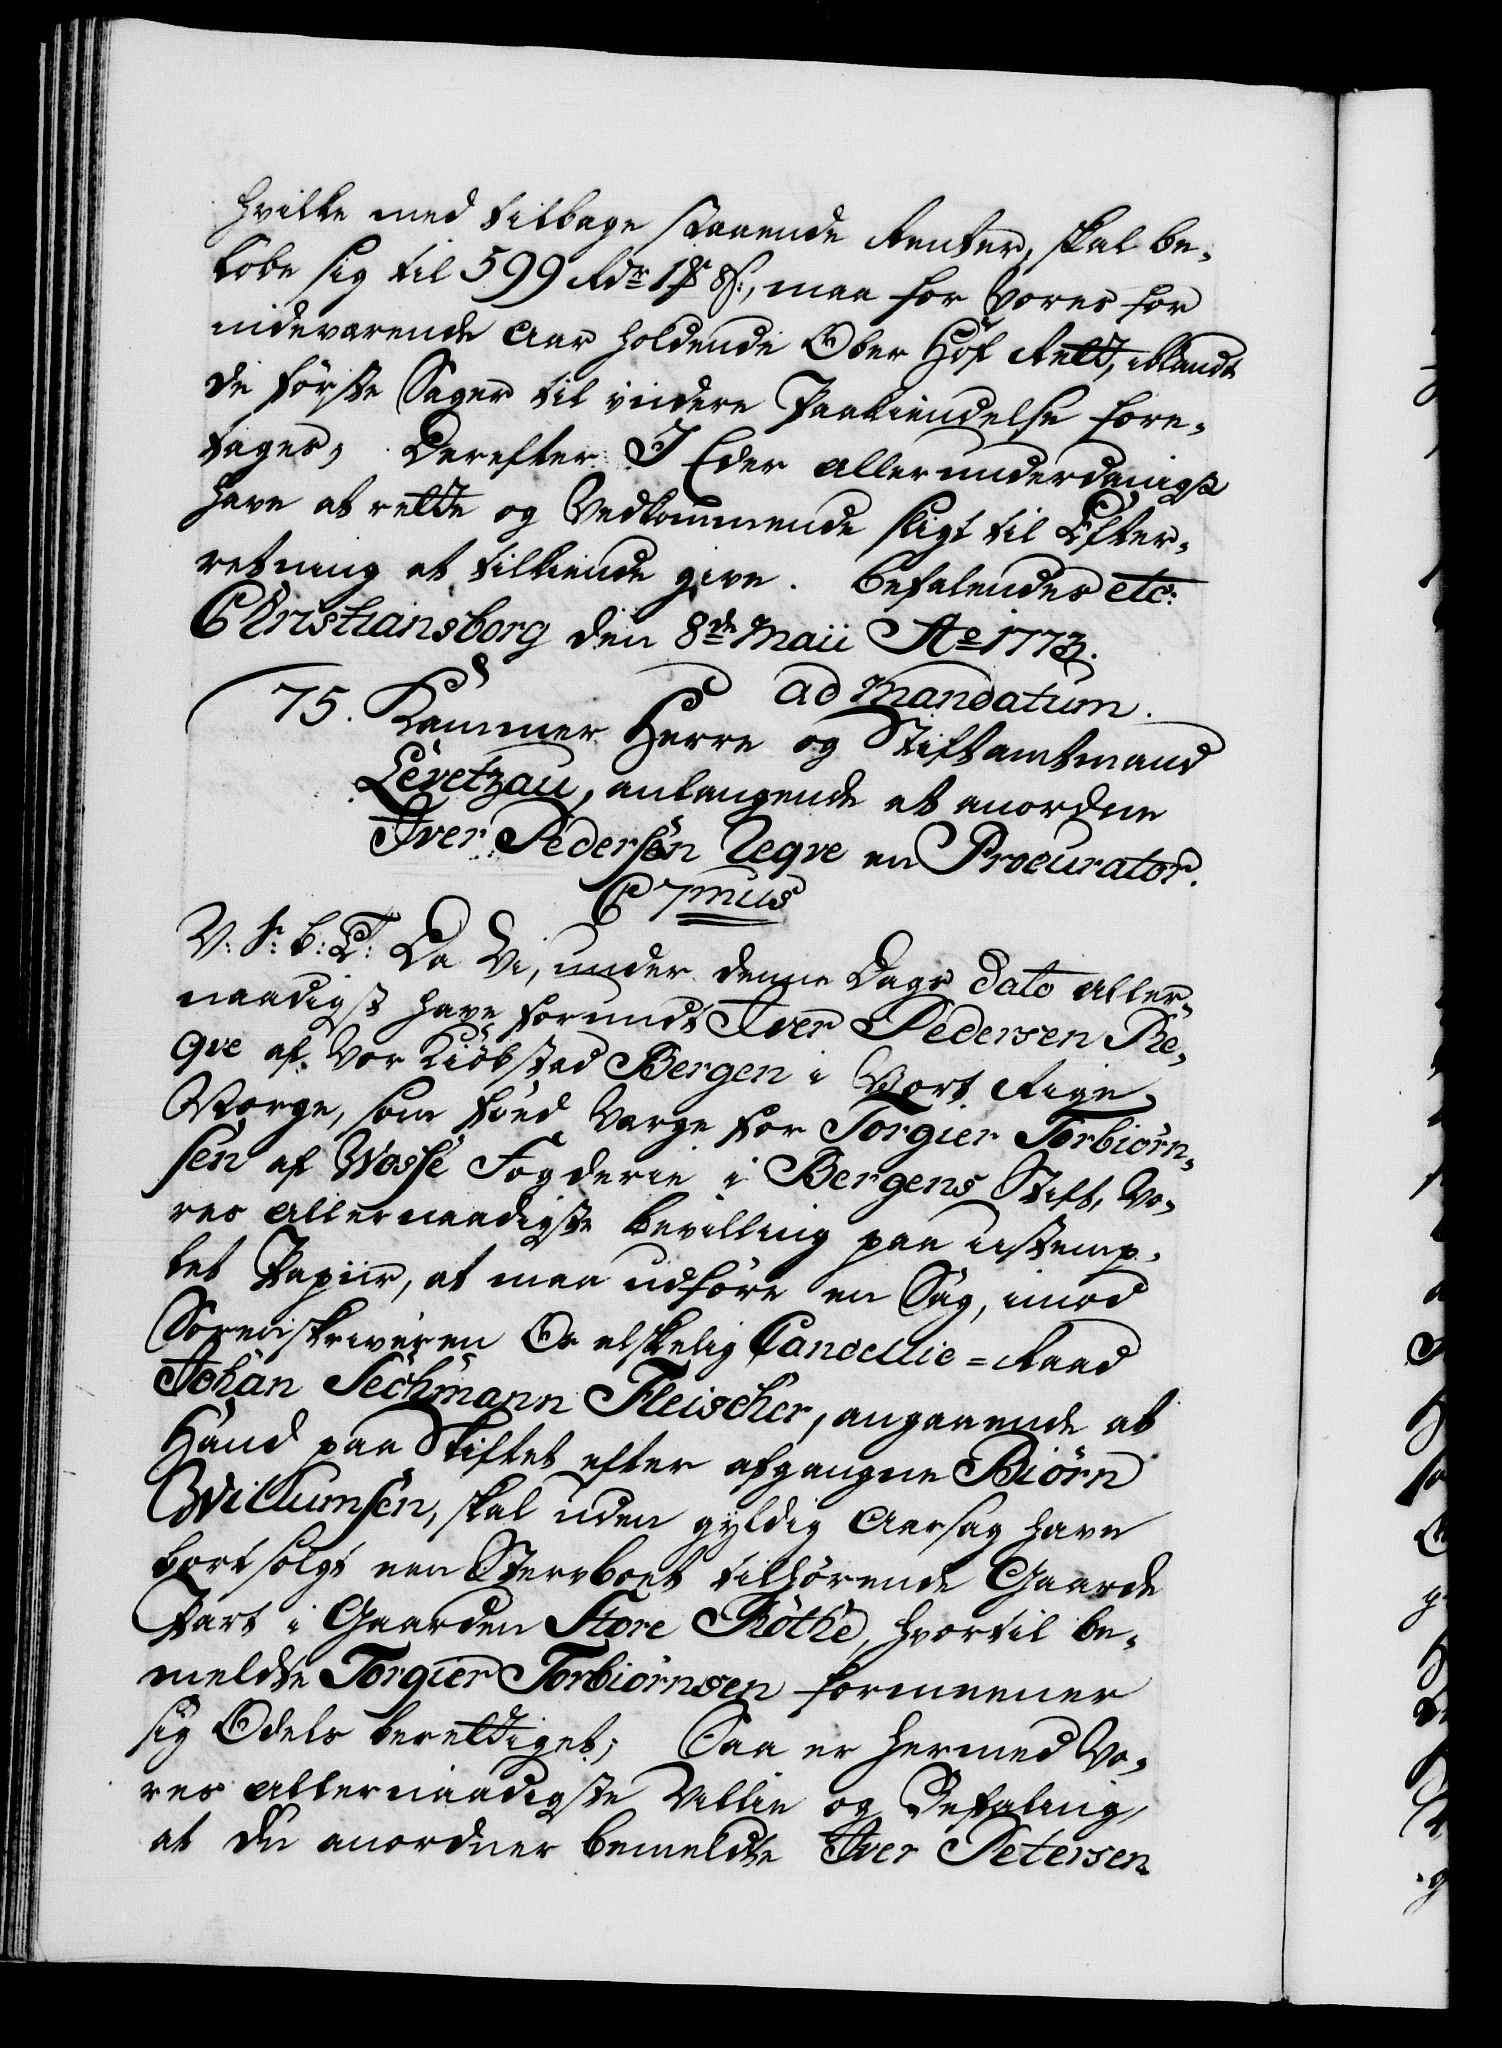 hvilke med tilbage staaende Renter, skal be-
löbe sig til 599 Rdr 1 ß:, maa for Vores for
indeværende Aar holdende Ober Hof Rett, iblandt
de förste Sager til videre Paakiendelse fore-
tages; Derefter I Eder allerunderdanigst
have at rette og Vedkommende sligt til Efter-
retning at tilkiende give. Befalendes etc:
Christiansborg den 8de Maii Ao 1773.
ad mandatum.
75. Kammer Herre og Stiftamtmand
Levetzau, anlangende at anordne
Iver Pedersen Reqve en Procurator.
C 7mus
V: S: B: T: Da Vi, under denne Dags Dato aller-
naadigst have forundt Iver Pedersen Re-
qve af Vor Kiöbsted Bergen i Vort Rige
Norge, som föed Verge for Torgier Torbiörn-
sen af Wosse Fogderie i Bergens Stift, Vo-
res allernaadigste Bevilling paa ustemp-
let Papiir, at maa udföre en Sag, imod
Sorenskriveren Os elskelig Cancellie=Raad
Johan Sechmann Fleischer, angaaende at
Hand paa Skiftet efter afgangne Biörn
Willumsen, skal uden gyldig Aarsag have
bortsolgt een Stervboet tilhörende Gaarde
Part i Gaarden Store Röthe, hvortil be-
meldte Torgier Torbiörnsen formeener
sig Odels berettiget; Saa er hermed Vo-
res allernaadigste Villie og Befaling,
at Du anordner bemeldte Iver Petersen